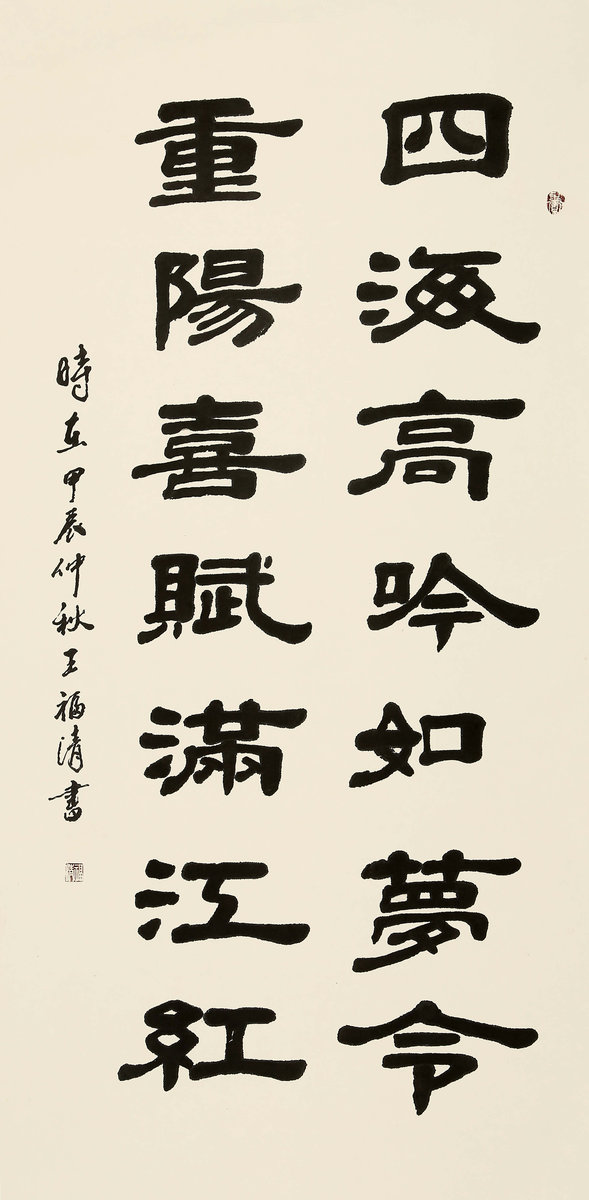 四海高吟如夢令
重陽喜賦滿江紅
時在甲辰仲秋王福清書